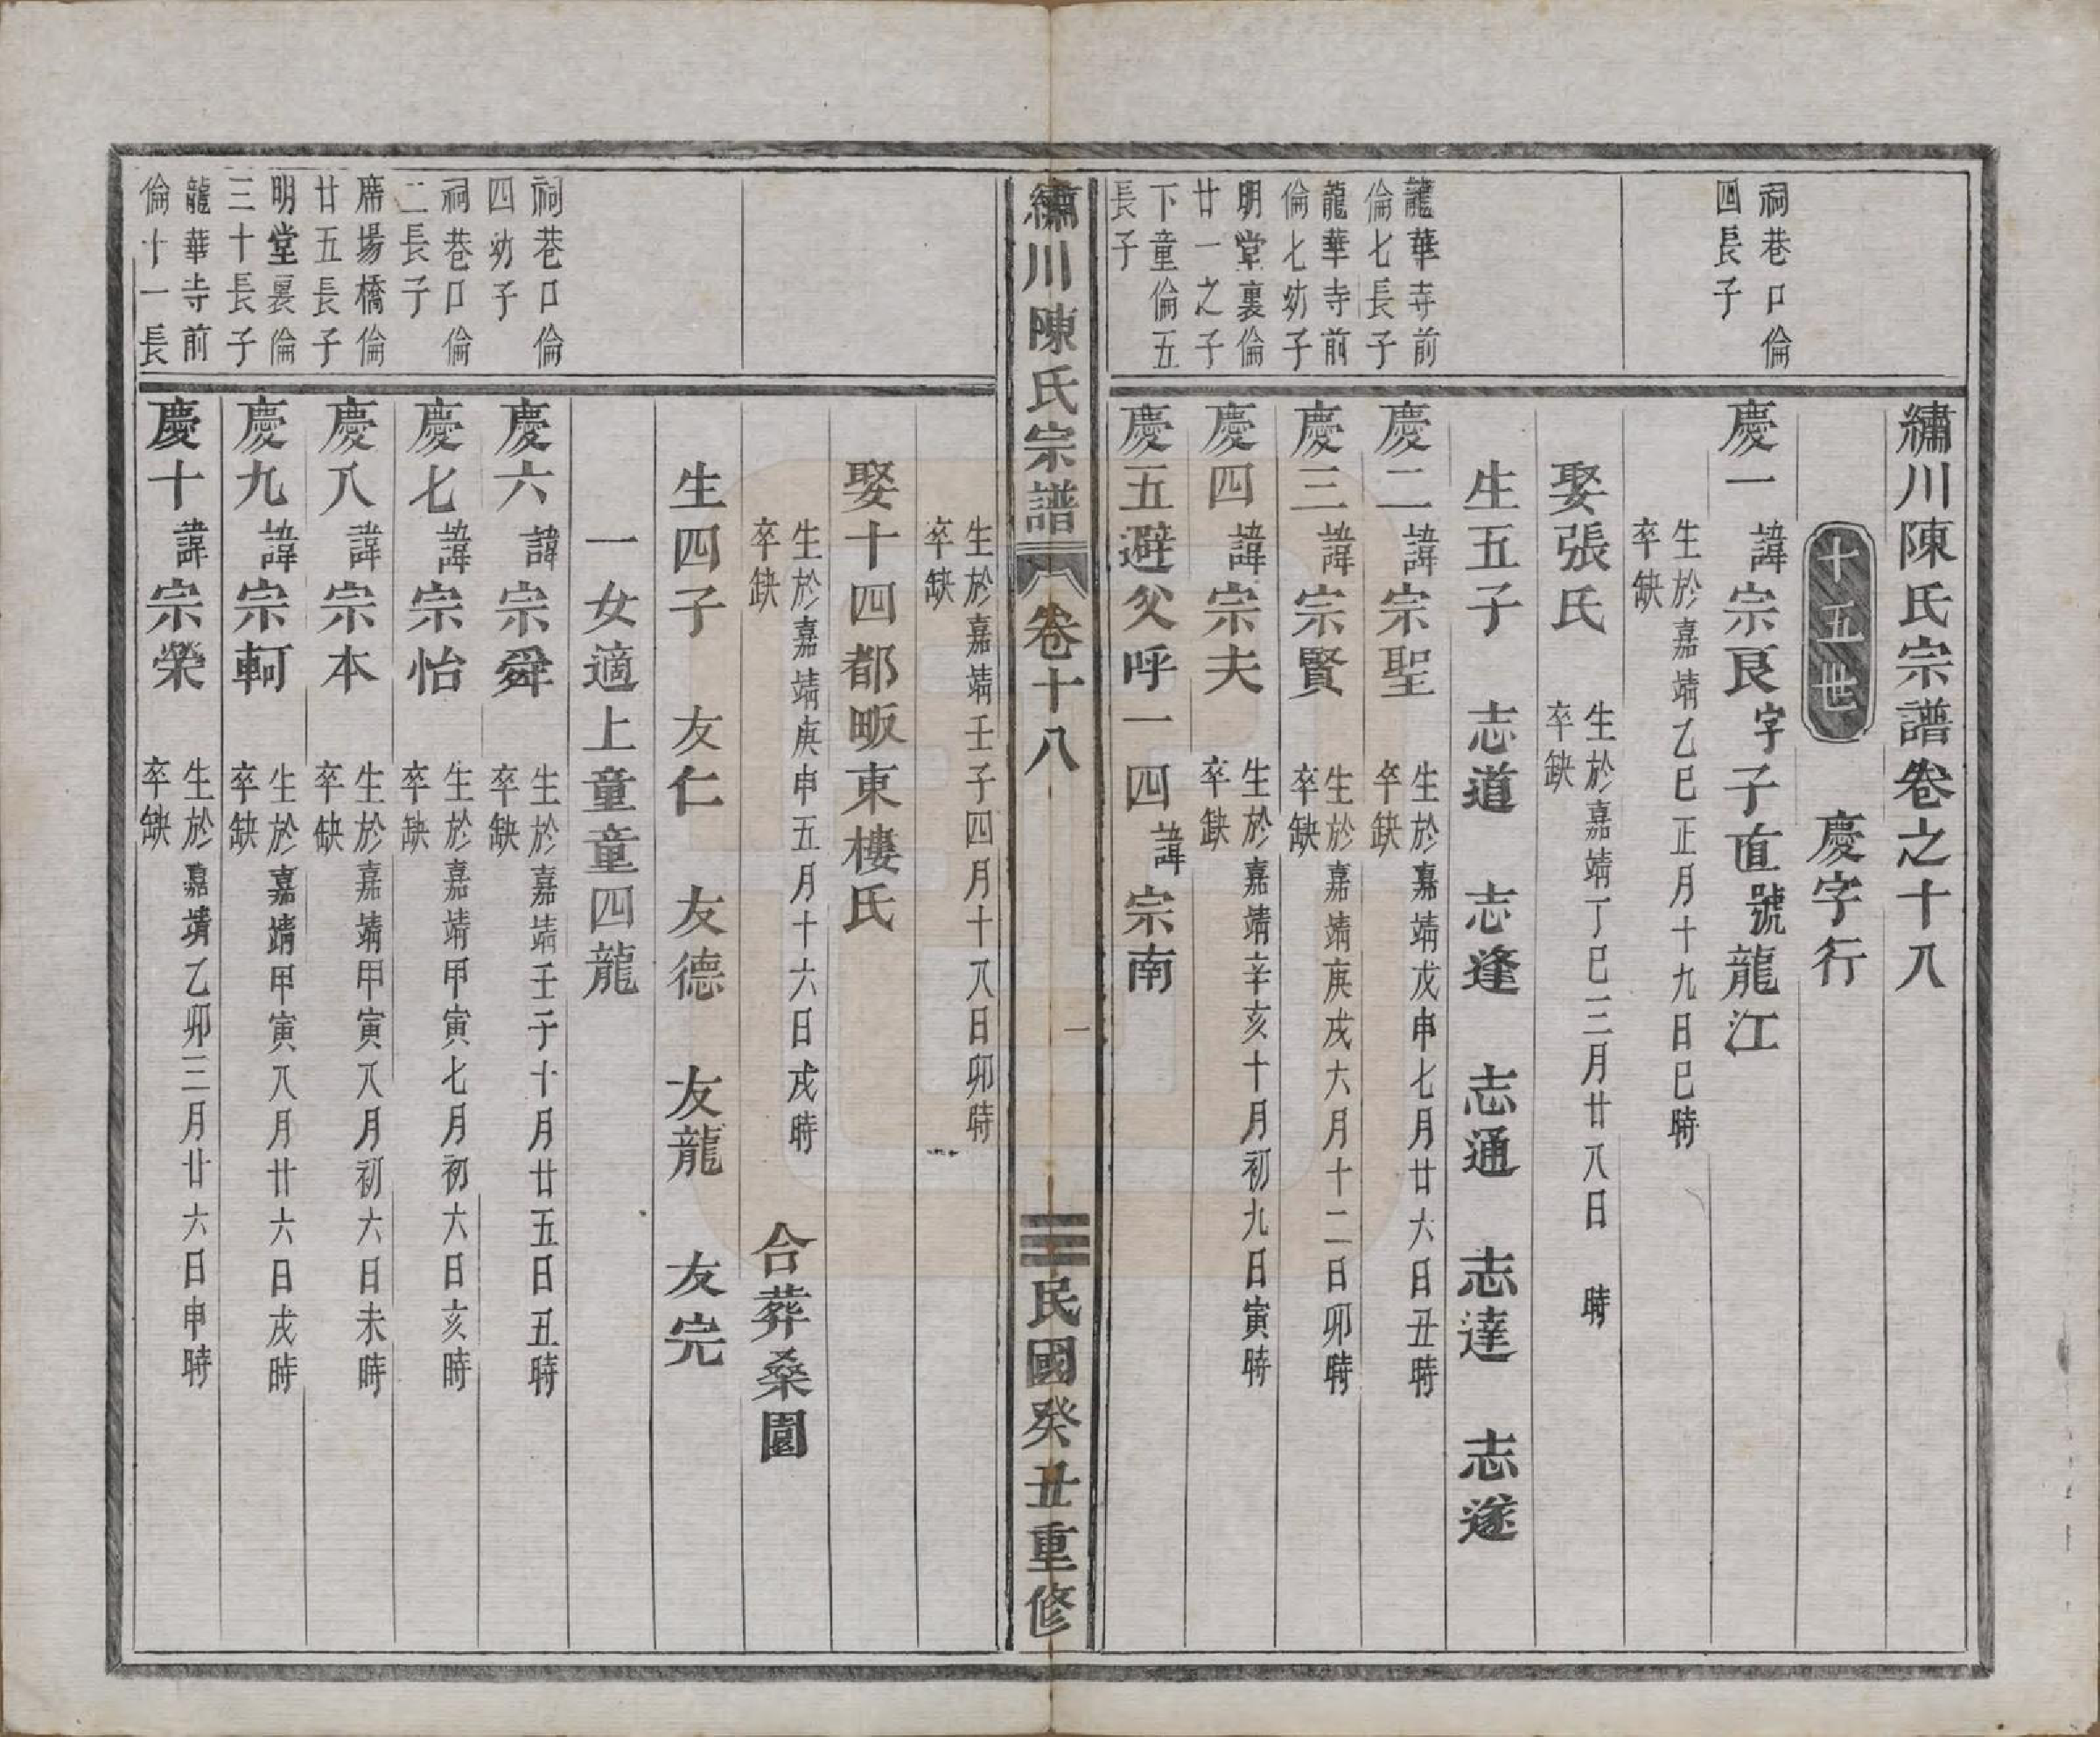 繡川陳氏宗譜卷之十八
十五世
慶字行
祠巷口倫
四長子
慶一諱宗良字子直號龍江
生於嘉靖乙巳正月十九日巳時
卒缺
娶張氏
生於嘉靖丁巳三月廿八日 時
卒缺
生五子 志道 志逢 志通 志達 志遂
龍華寺前
倫七長子
慶二諱宗聖
生於嘉靖戊申七月廿六日丑時
卒缺
龍華寺前
倫七幼子
慶三諱宗賢
生於嘉靖庚戌六月十二日卯時
卒缺
明堂裏倫
廿一之子
慶四諱宗夫
生於嘉靖辛亥十月初九日寅時
卒缺
下童倫五
長子
慶五避父呼一四諱宗南
繡川陳氏宗譜 卷十八 一 民國癸丑重修
生於嘉靖壬子四月十八日卯時
卒缺
娶十四都畈東樓氏
生於嘉靖庚申五月十六日戌時
卒缺
合葬桑園
生四子 友仁 友德 友龍 友完
一女適上童童四龍
祠巷口倫
四幼子
慶六諱宗舜
生於嘉靖壬子十月廿五日丑時
卒缺
祠巷口倫
二長子
慶七諱宗怡
生於嘉靖甲寅七月初六日亥時
卒缺
席場橋倫
廿五長子
慶八諱宗本
生於嘉靖甲寅八月初六日未時
卒缺
明堂裏倫
三十長子
慶九諱宗軻
生於嘉靖甲寅八月廿六日戌時
卒缺
龍華寺前
倫十一長
慶十諱宗榮
生於嘉靖乙卯三月廿六日申時
卒缺